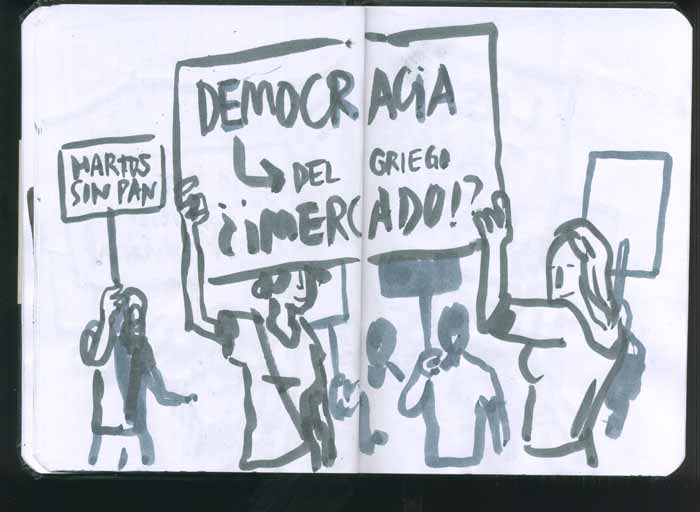 DEMOCRACiA
DEL GRIEGO
¿¡MERCADO!?
MARTOS
SIN PAN